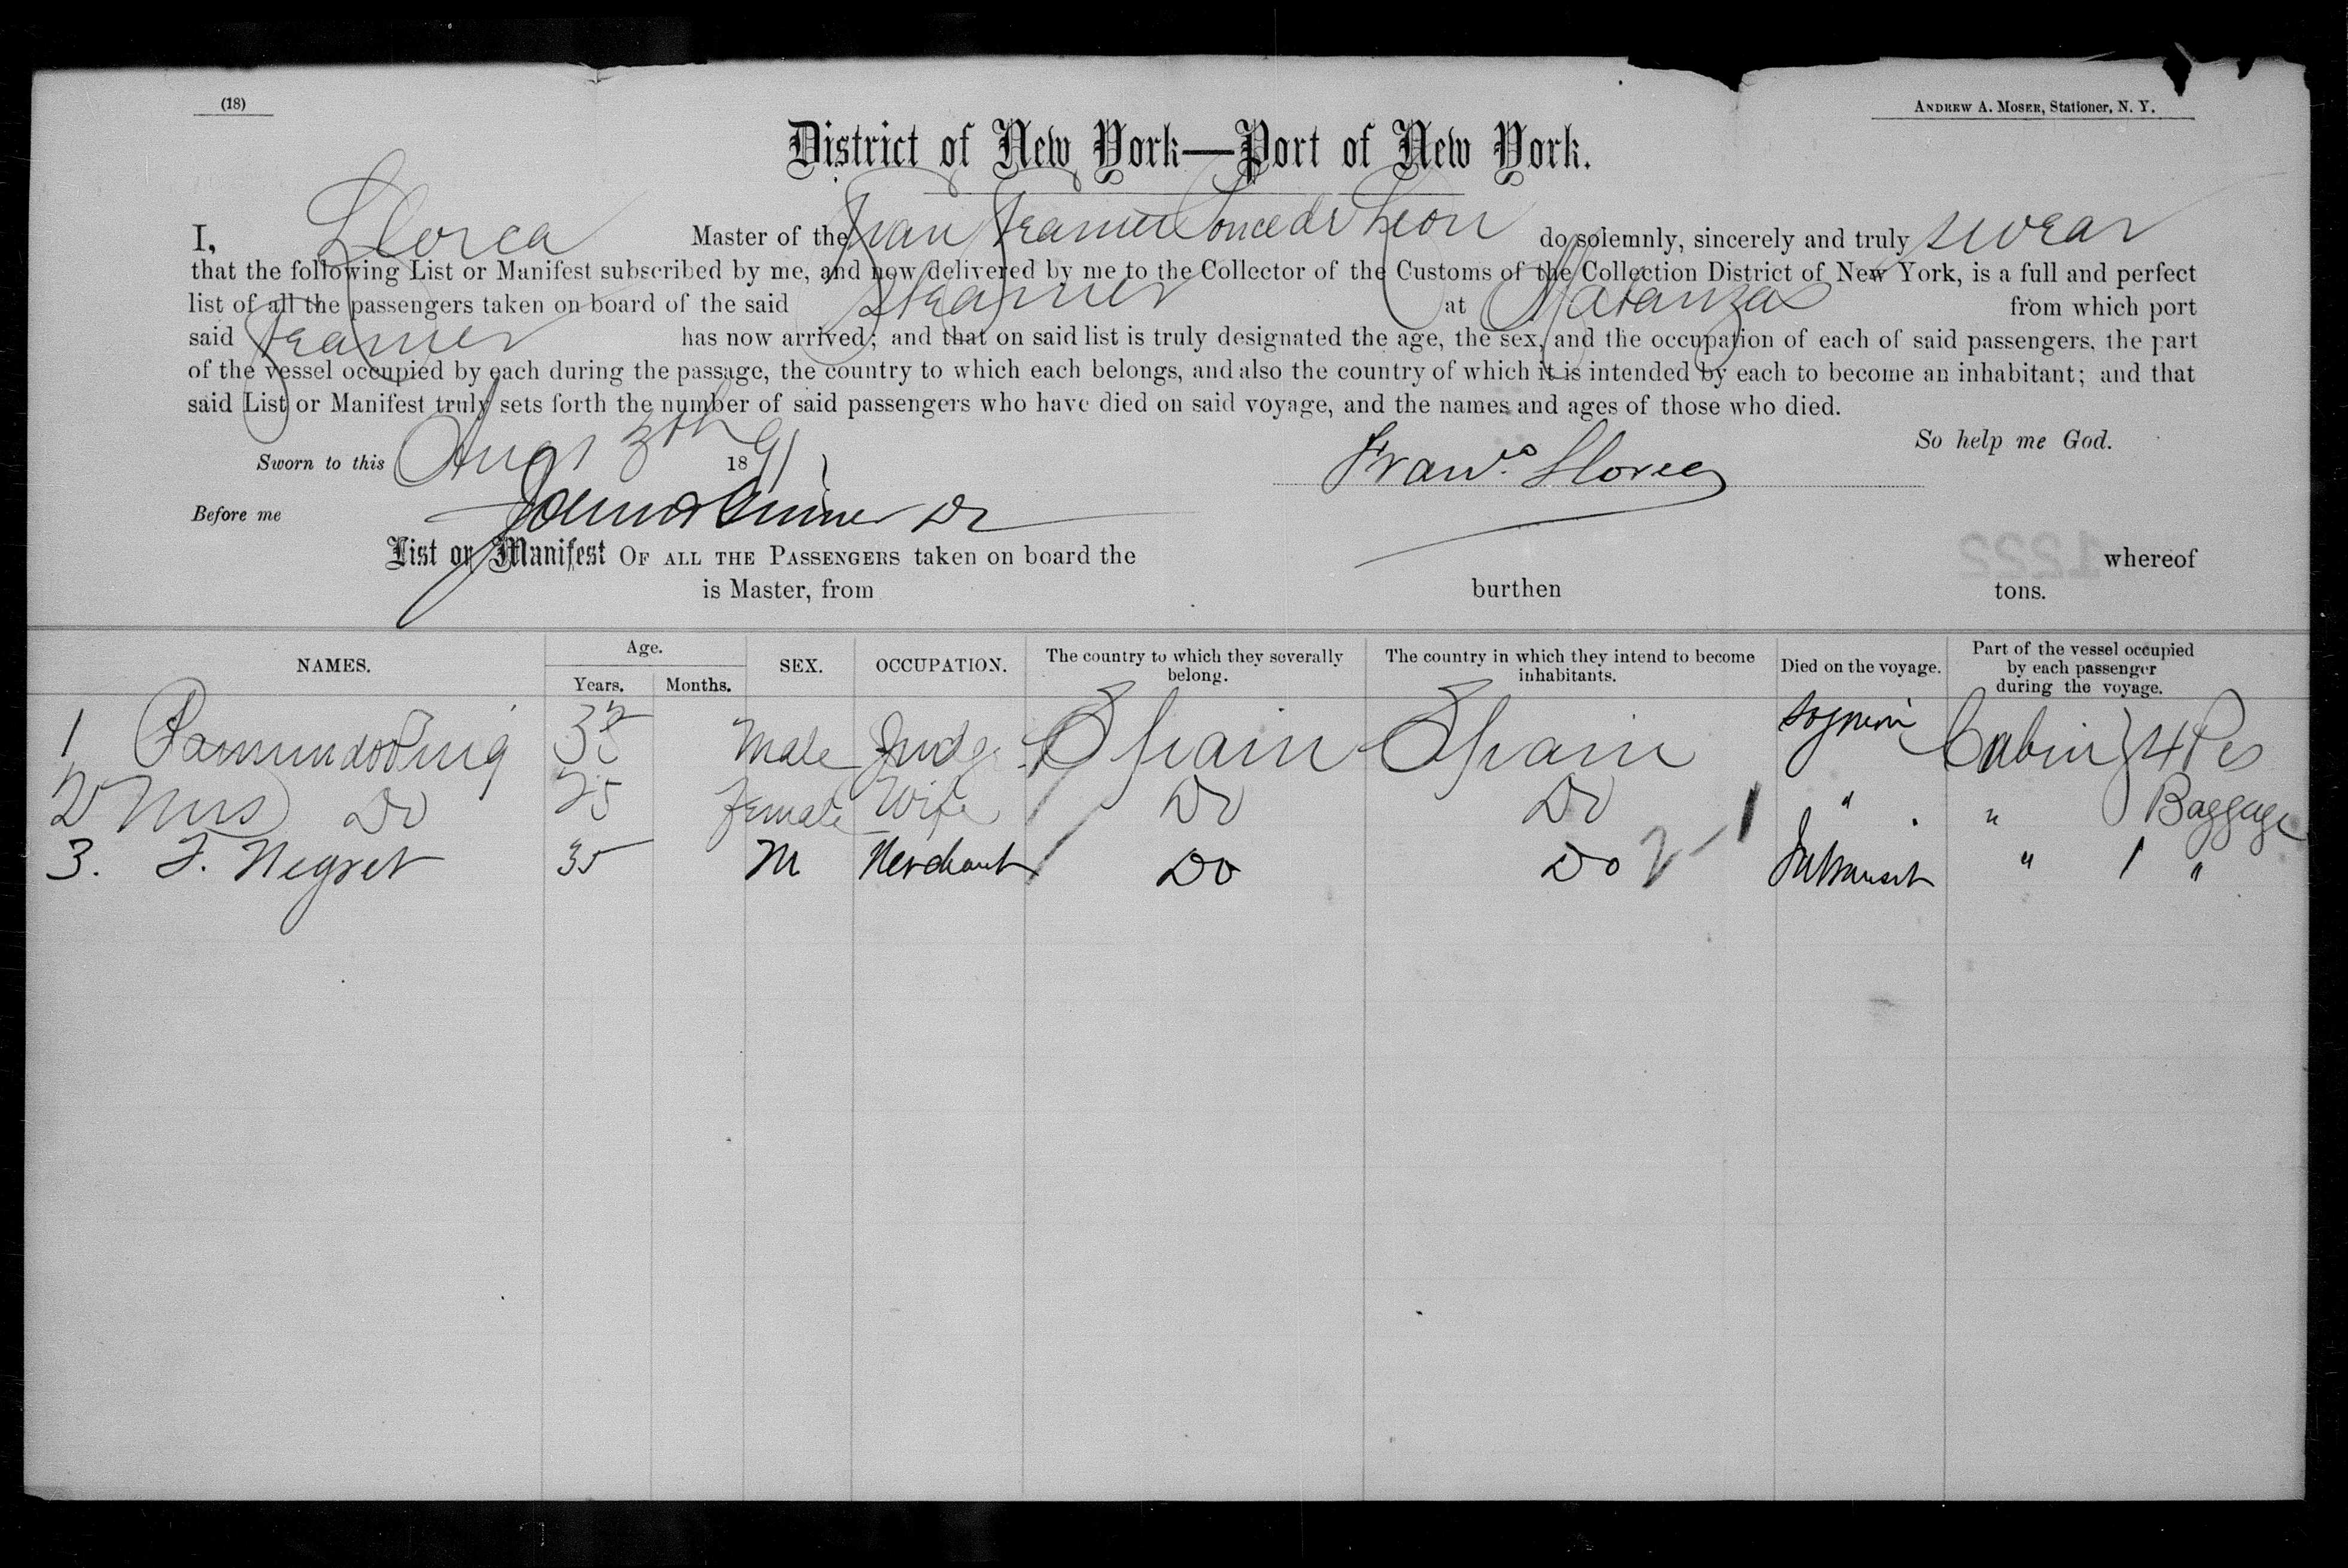 (18)
ANDREW A. MOSER, Stationer, N. Y.
District of New York—Port of New York.
I, Llorca Master of the Span Steamer Ponce de Leon do solemnly, sincerely and truly swear
that the following List or Manifest subscribed by me, and now delivered by me to the Collector of the Customs of the Collection District of New York, is a full and perfect
list of all the passengers taken on board of the said Steamer at Matanzas from which port
said Steamer has now arrived; and that on said list is truly designated the age, the sex, and the occupation of each of said passengers, the part
of the vessel occupied by each during the passage, the country to which each belongs, and also the country of which it is intended by each to become an inhabitant; and that
said List or Manifest truly sets forth the number of said passengers who have died on said voyage, and the names and ages of those who died.
So help me God.
Sworn to this Augt 5th 1891
Franco. Llorca
Before me
List or Manifest OF ALL THE PASSENGERS taken on board the whereof
is Master, from burthen tons.
1222
NAMES. Age. Years. Months. SEX. OCCUPATION. The country to which they severally belong. The country in which they intend to become inhabitants. Died on the voyage. Part of the vessel occupied by each passenger during the voyage.
1 Ramundo Puig Male Judge Spain Spain Cabin } 4 Ps
2 Mrs Do 25 Female Wife Do Do " " Baggage
3. F. Negret 35 M Merchant Do Do 2 - 1 Intransit " 1 "